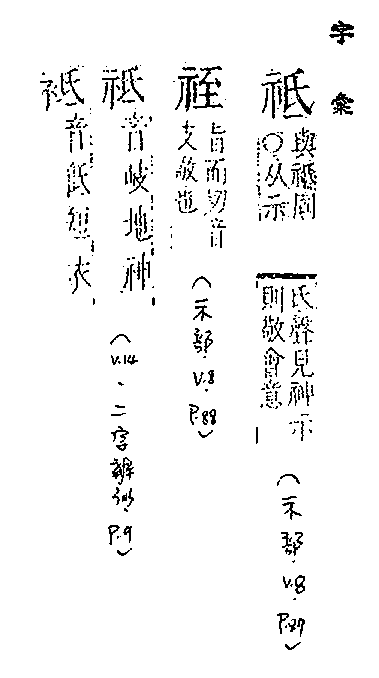 字彙
祗
與祗同
○从示
氏聲見神示
則敬會意
(示部.V.8.P.87)
祬
旨而切音
支敬也
(示部.V.8.P.88)
祇音岐地神
袛音低短衣
(V.14.二字辨似.P.9)